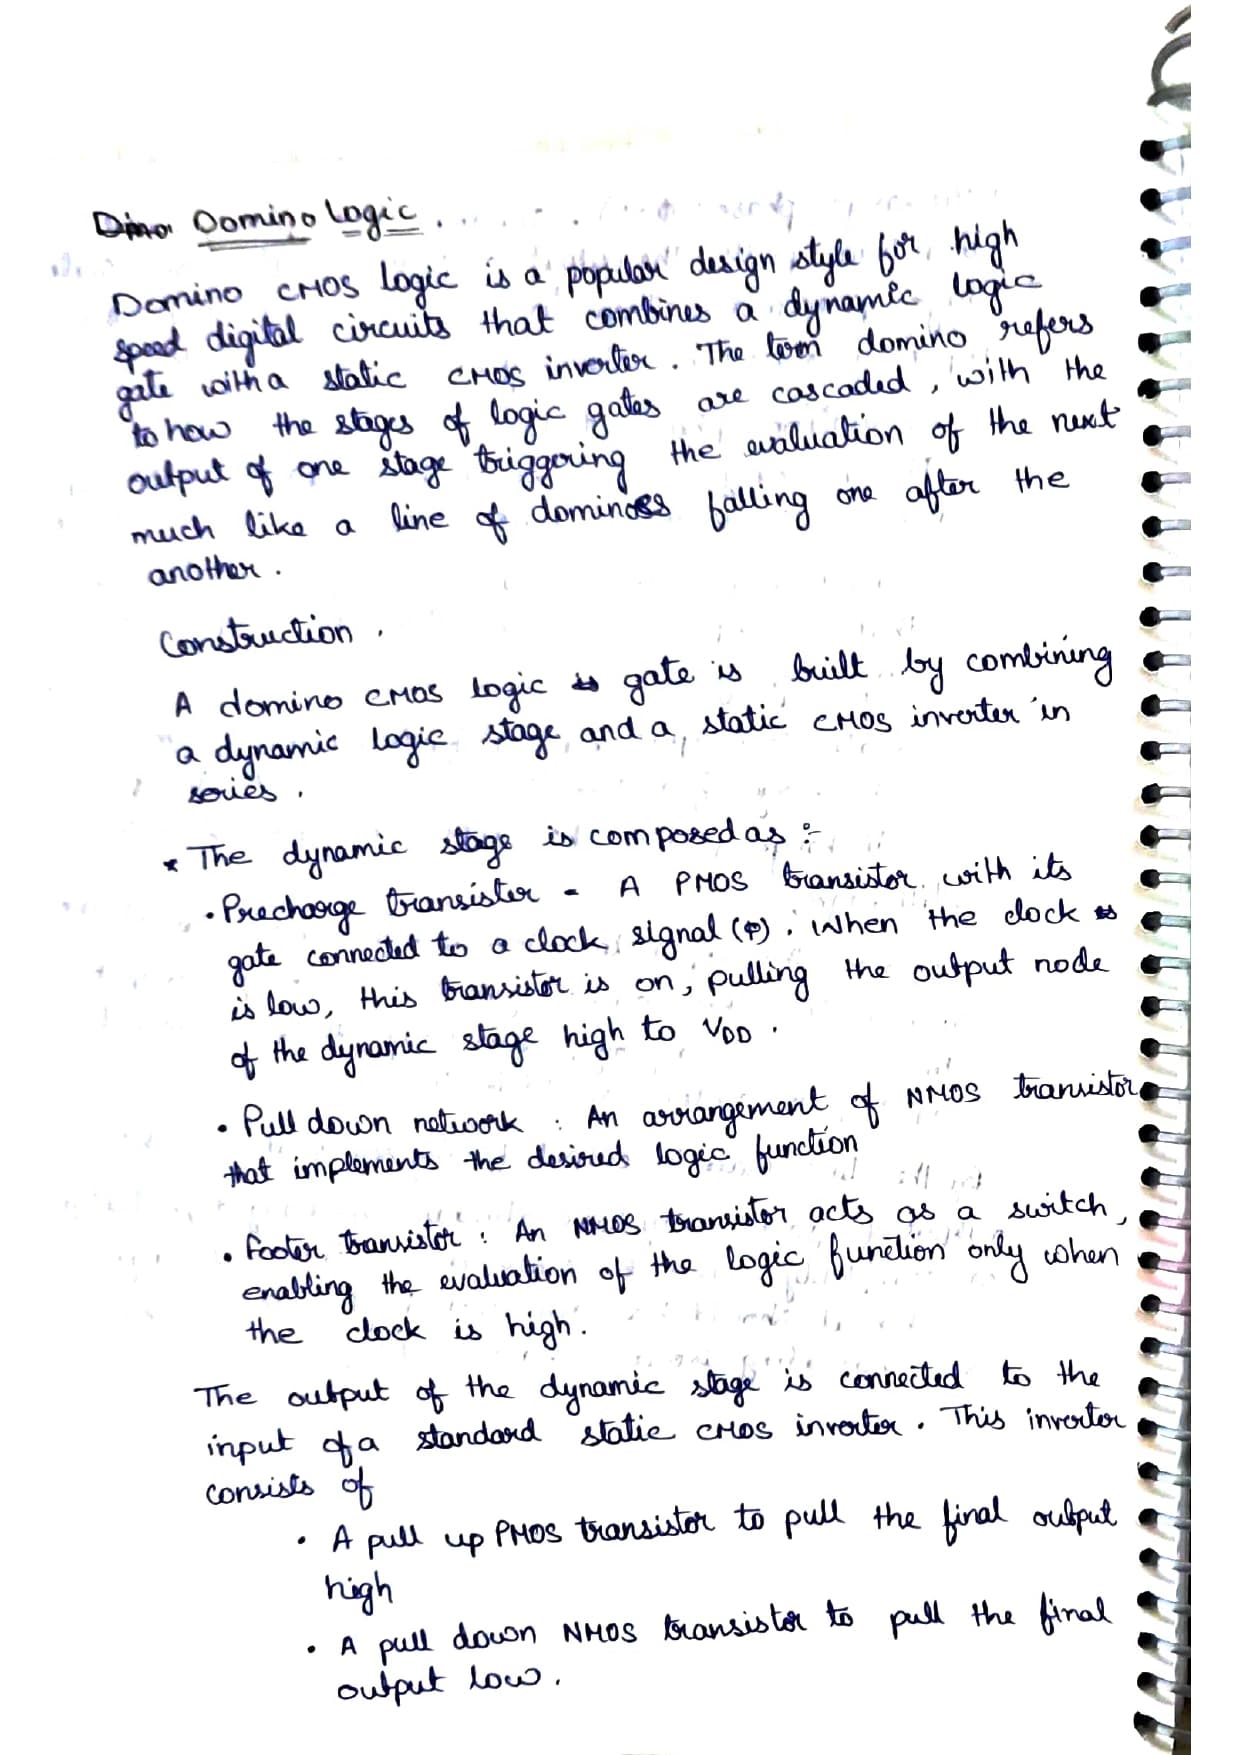 Domino Logic.
Domino CMOS logic is a popular design style for high
speed digital circuits that combines a dynamic logic
gate with a static CMOS inverter. The term domino refers
to how the stages of logic gates are cascaded, with the
output of one stage triggering the evaluation of the next
much like a line of dominoes falling one after the
another.
Construction.
A domino CMOS logic gate is built by combining
a dynamic logic stage and a static CMOS inverter in
series.
* The dynamic stage is composed as :-
• Precharge transistor - A PMOS transistor with its
gate connected to a clock signal (φ). When the clock
is low, this transistor is on, pulling the output node
of the dynamic stage high to VDD.
• Pull down network : An arrangement of NMOS transistor
that implements the desired logic function
• Footer transistor : An NMOS transistor acts as a switch,
enabling the evaluation of the logic function only when
the clock is high.
The output of the dynamic stage is connected to the
input of a standard static CMOS inverter. This inverter
consists of
• A pull up PMOS transistor to pull the final output
high
• A pull down NMOS transistor to pull the final
output low.